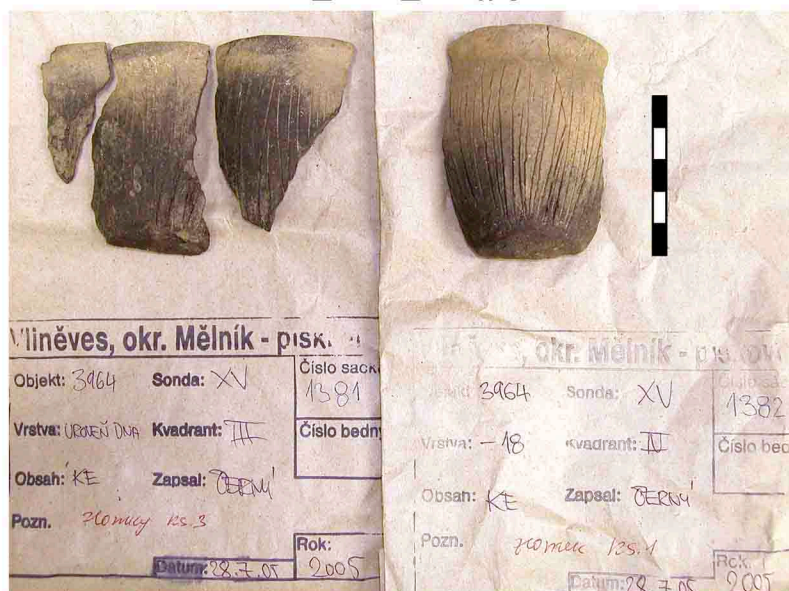 Vliněves, okr. Mělník - písk
Objekt: 3964 Sonda: XV Číslo sáčk
1381
Vrstva: ÚROVEŇ DNA Kvadrant: III Číslo bedny
Obsah: KE Zapsal: ČERNÝ
Pozn. zlomky ks. 3
Rok:
Datum: 28.7.05 2005
okr. Mělník - pískovn
3964 Sonda: XV Číslo sáč
1382
Vrstva: - 18 Kvadrant: IV Číslo bed
Obsah: KE Zapsal: ČERNÝ
Pozn. zlomek ks. 1
Rok:
Datum: 28.7.05 2005